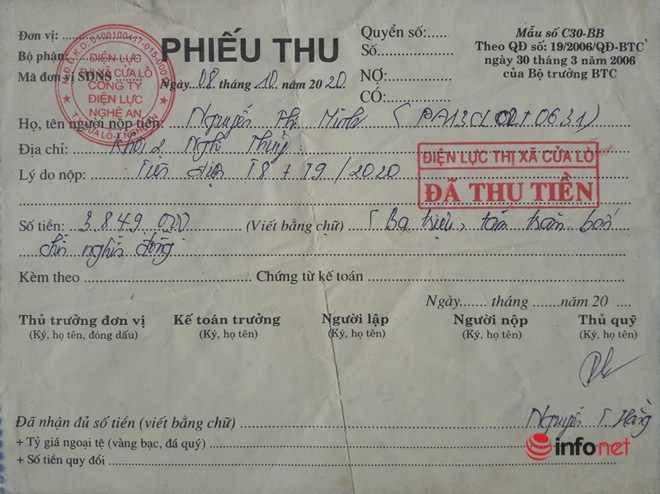 Đơn vị: PHIẾU THU Quyển số: Mẫu số C30-BB
Bộ phận: Số Theo QĐ số: 19/2006/QĐ-BTC
Mã đơn vị SDNS Ngày 08 tháng 10 năm 2020 NỢ: ngày 30 tháng 3 năm 2006
CÓ: của Bộ trưởng BTC
ĐIỆN LỰC
CỬA LÒ
CÔNG TY
ĐIỆN LỰC
NGHỆ AN
Họ, tên người nộp tiền: Nguyễn Thị Minh (PA13CL0LT0631)
Địa chỉ: Khối 2 Nghi Thủy
Lý do nộp: Tiền điện T8 + T9/2020
ĐIỆN LỰC THỊ XÃ CỬA LÒ
ĐÃ THU TIỀN
Số tiền: 3.849.000 (Viết bằng chữ) (Ba triệu, tám trăm bốn
chín nghìn đồng)
Kèm theo Chứng từ kế toán
Ngày tháng năm 20
Thủ trưởng đơn vị Kế toán trưởng Người lập Người nộp Thủ quỹ
(Ký, họ tên, đóng dấu) (Ký, họ tên) (Ký, họ tên) (Ký, họ tên) (Ký, họ tên)
Đã nhận đủ số tiền (viết bằng chữ) Nguyễn T Hằng
+ Tỷ giá ngoại tệ (vàng bạc, đá quý)
+ Số tiền quy đổi
infonet